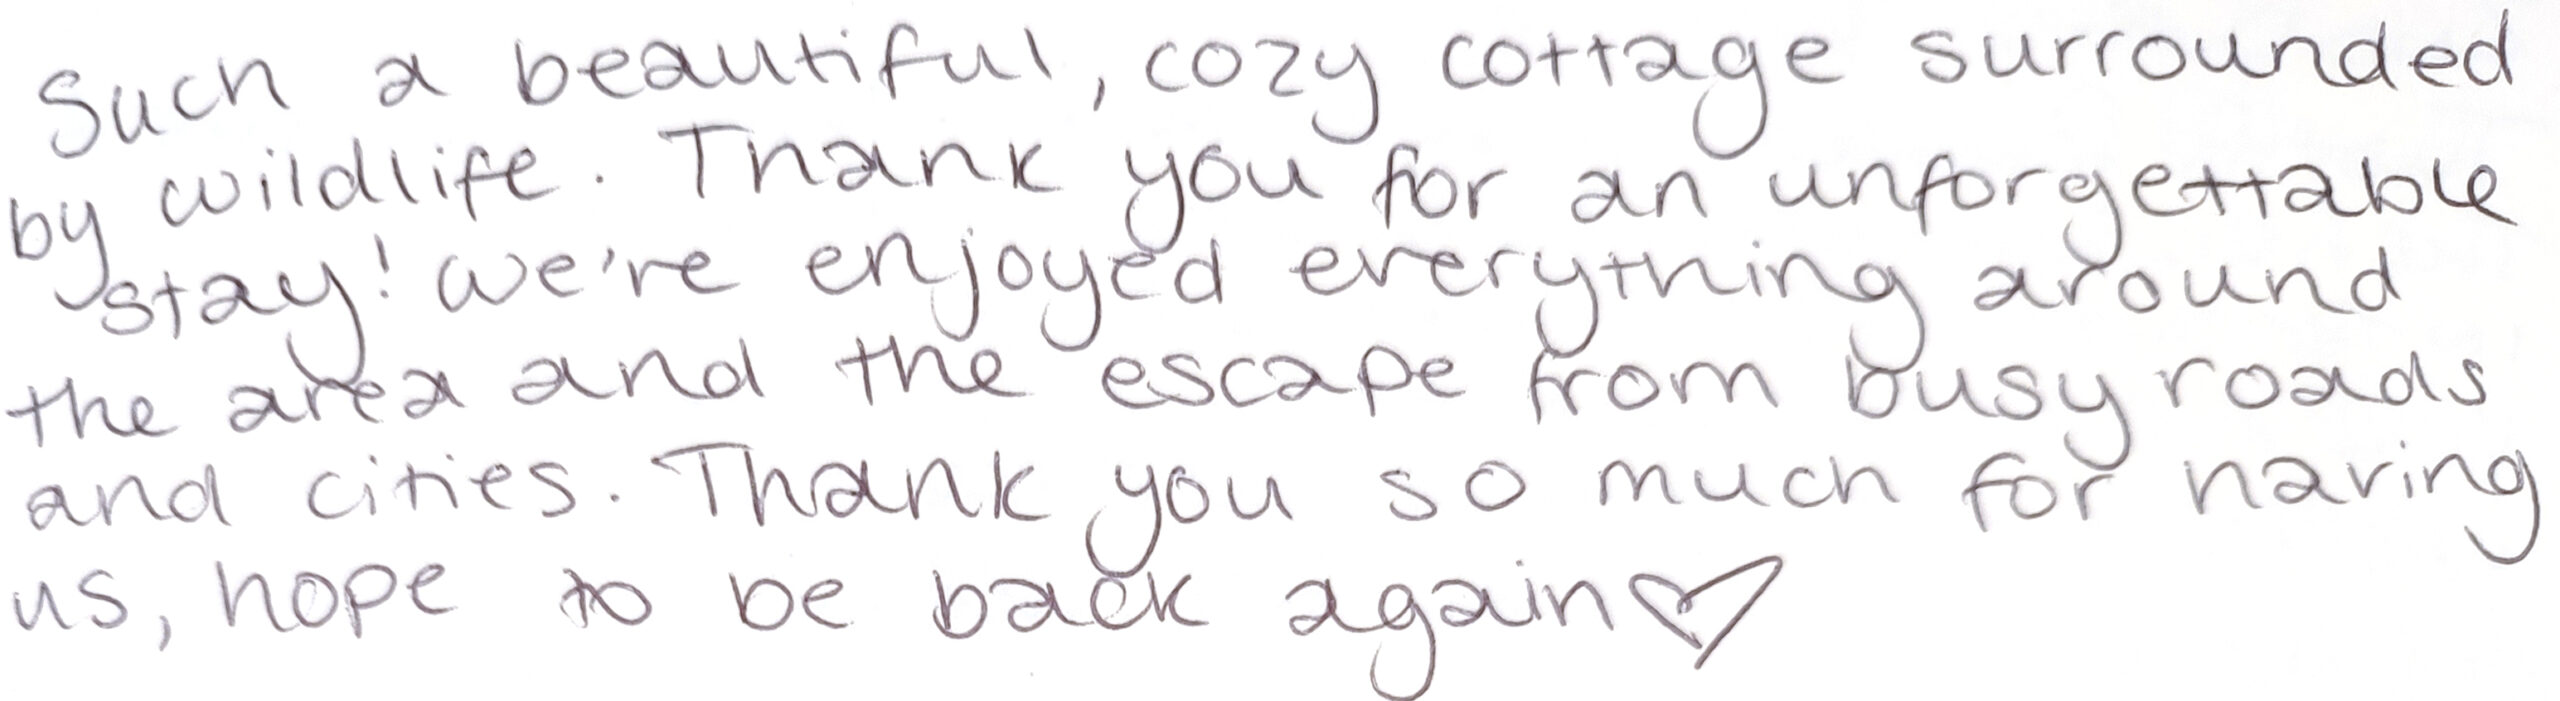 Such a beautiful, cozy cottage surrounded
by wildlife. Thank you for an unforgettable
stay! We're enjoyed everything around
the area and the escape from busy roads
and cities. Thank you so much for having
us, hope to be back again♡